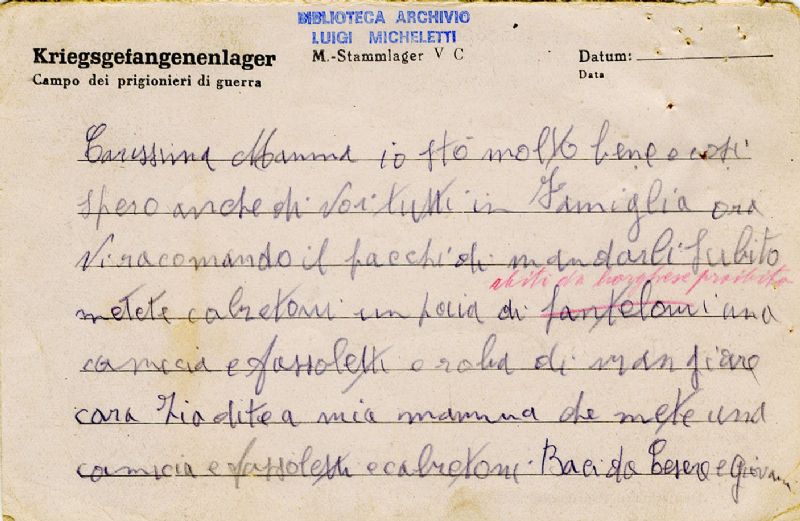 BIBLIOTECA ARCHIVIO
LUIGI MICHELETTI
Kriegsgefangenenlager
Campo dei prigionieri di guerra
M.-Stammlager V C
Datum:
Data
Carissima Mamma io stò molto bene e cosi
spero anche di Voi tutti in Famiglia ora
Vi racomando il pacchi di mandarli subito
abiti da borghese proibito
metete calzetoni un paia di pantaloni una
camicia e fassoletti e roba di mangiare
cara Zia dite a mia mamma che mete una
camicia e fassoletti e calzetoni. Baci da Cesare e Giovani